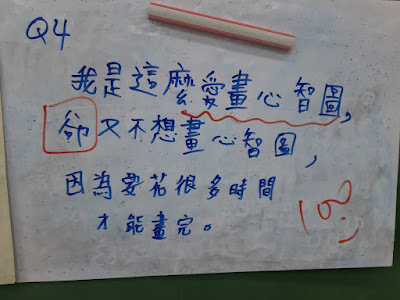 Q4
我是這麼愛畫心智圖，
卻又不想畫心智圖，
因為要花很多時間
才能畫完。
100